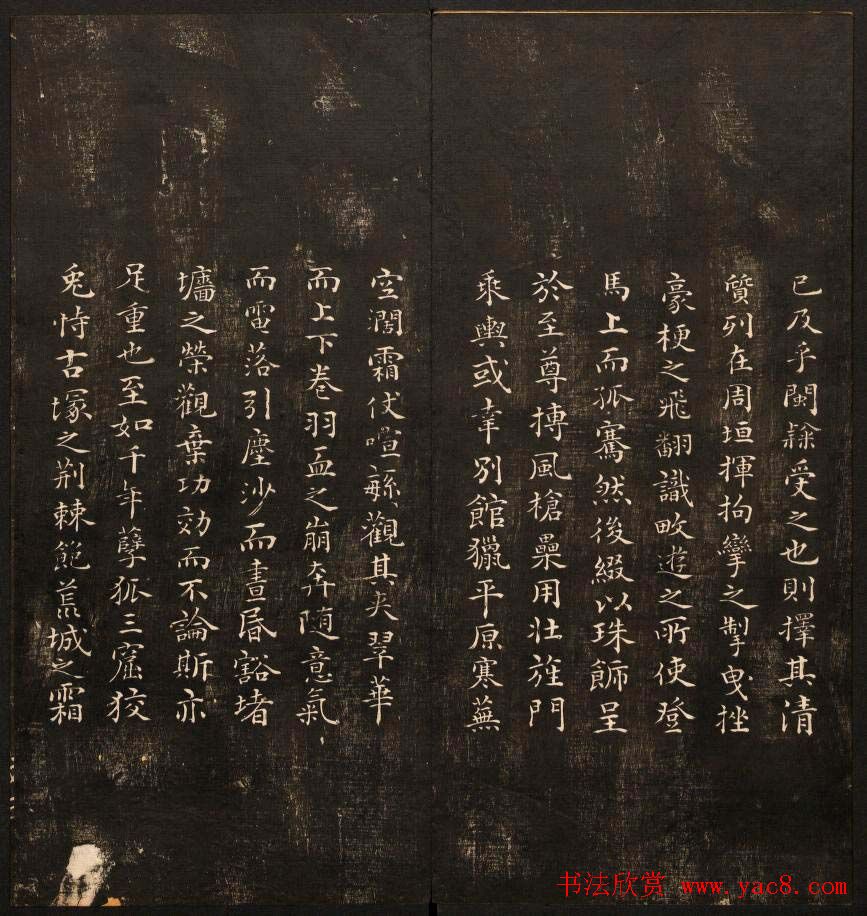 已及乎閽隸受之也則擇其清
質列在周垣揮拘攣之掣曳挫
豪梗之飛翻識畋遊之所使登
馬上而孤騫然後綴以珠飾呈
於至尊摶風槍纍用壯旌門
乘輿或幸別館獵平原寒蕪
空濶霜仗喧繁觀其夾翠華
而上下卷羽血之崩奔隨意氣
而雷落引塵沙而晝昏豁堵
墻之榮觀棄功効而不論斯亦
足重也至如千年孽狐三窟狡
兔恃古塚之荆棘飽荒城之霜
书法欣赏 www.yac8.com